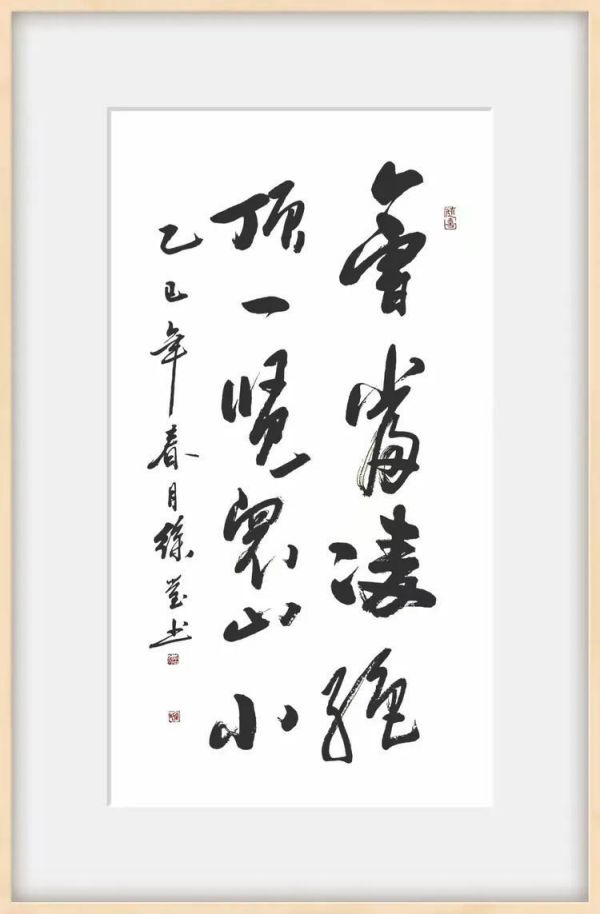 會當凌絕
頂一覽眾山小
乙巳年春月徐莹书